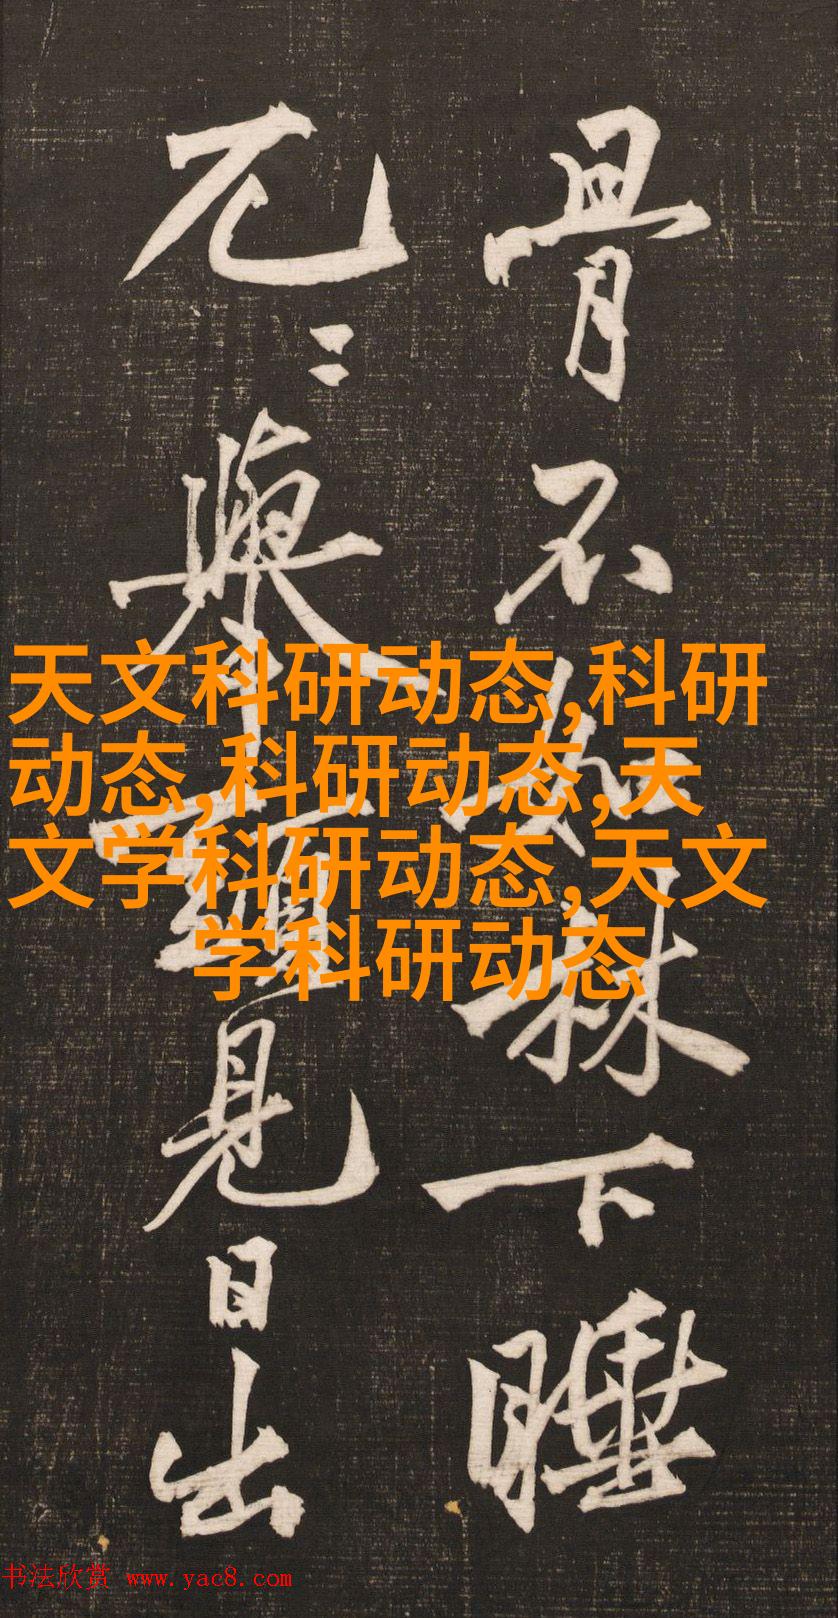 骨不如林下睡
兀〻舉頭見日出
天文科研动态,科研
动态,科研动态,天
文学科研动态,天文
学科研动态
书法欣赏 www.yac8.com